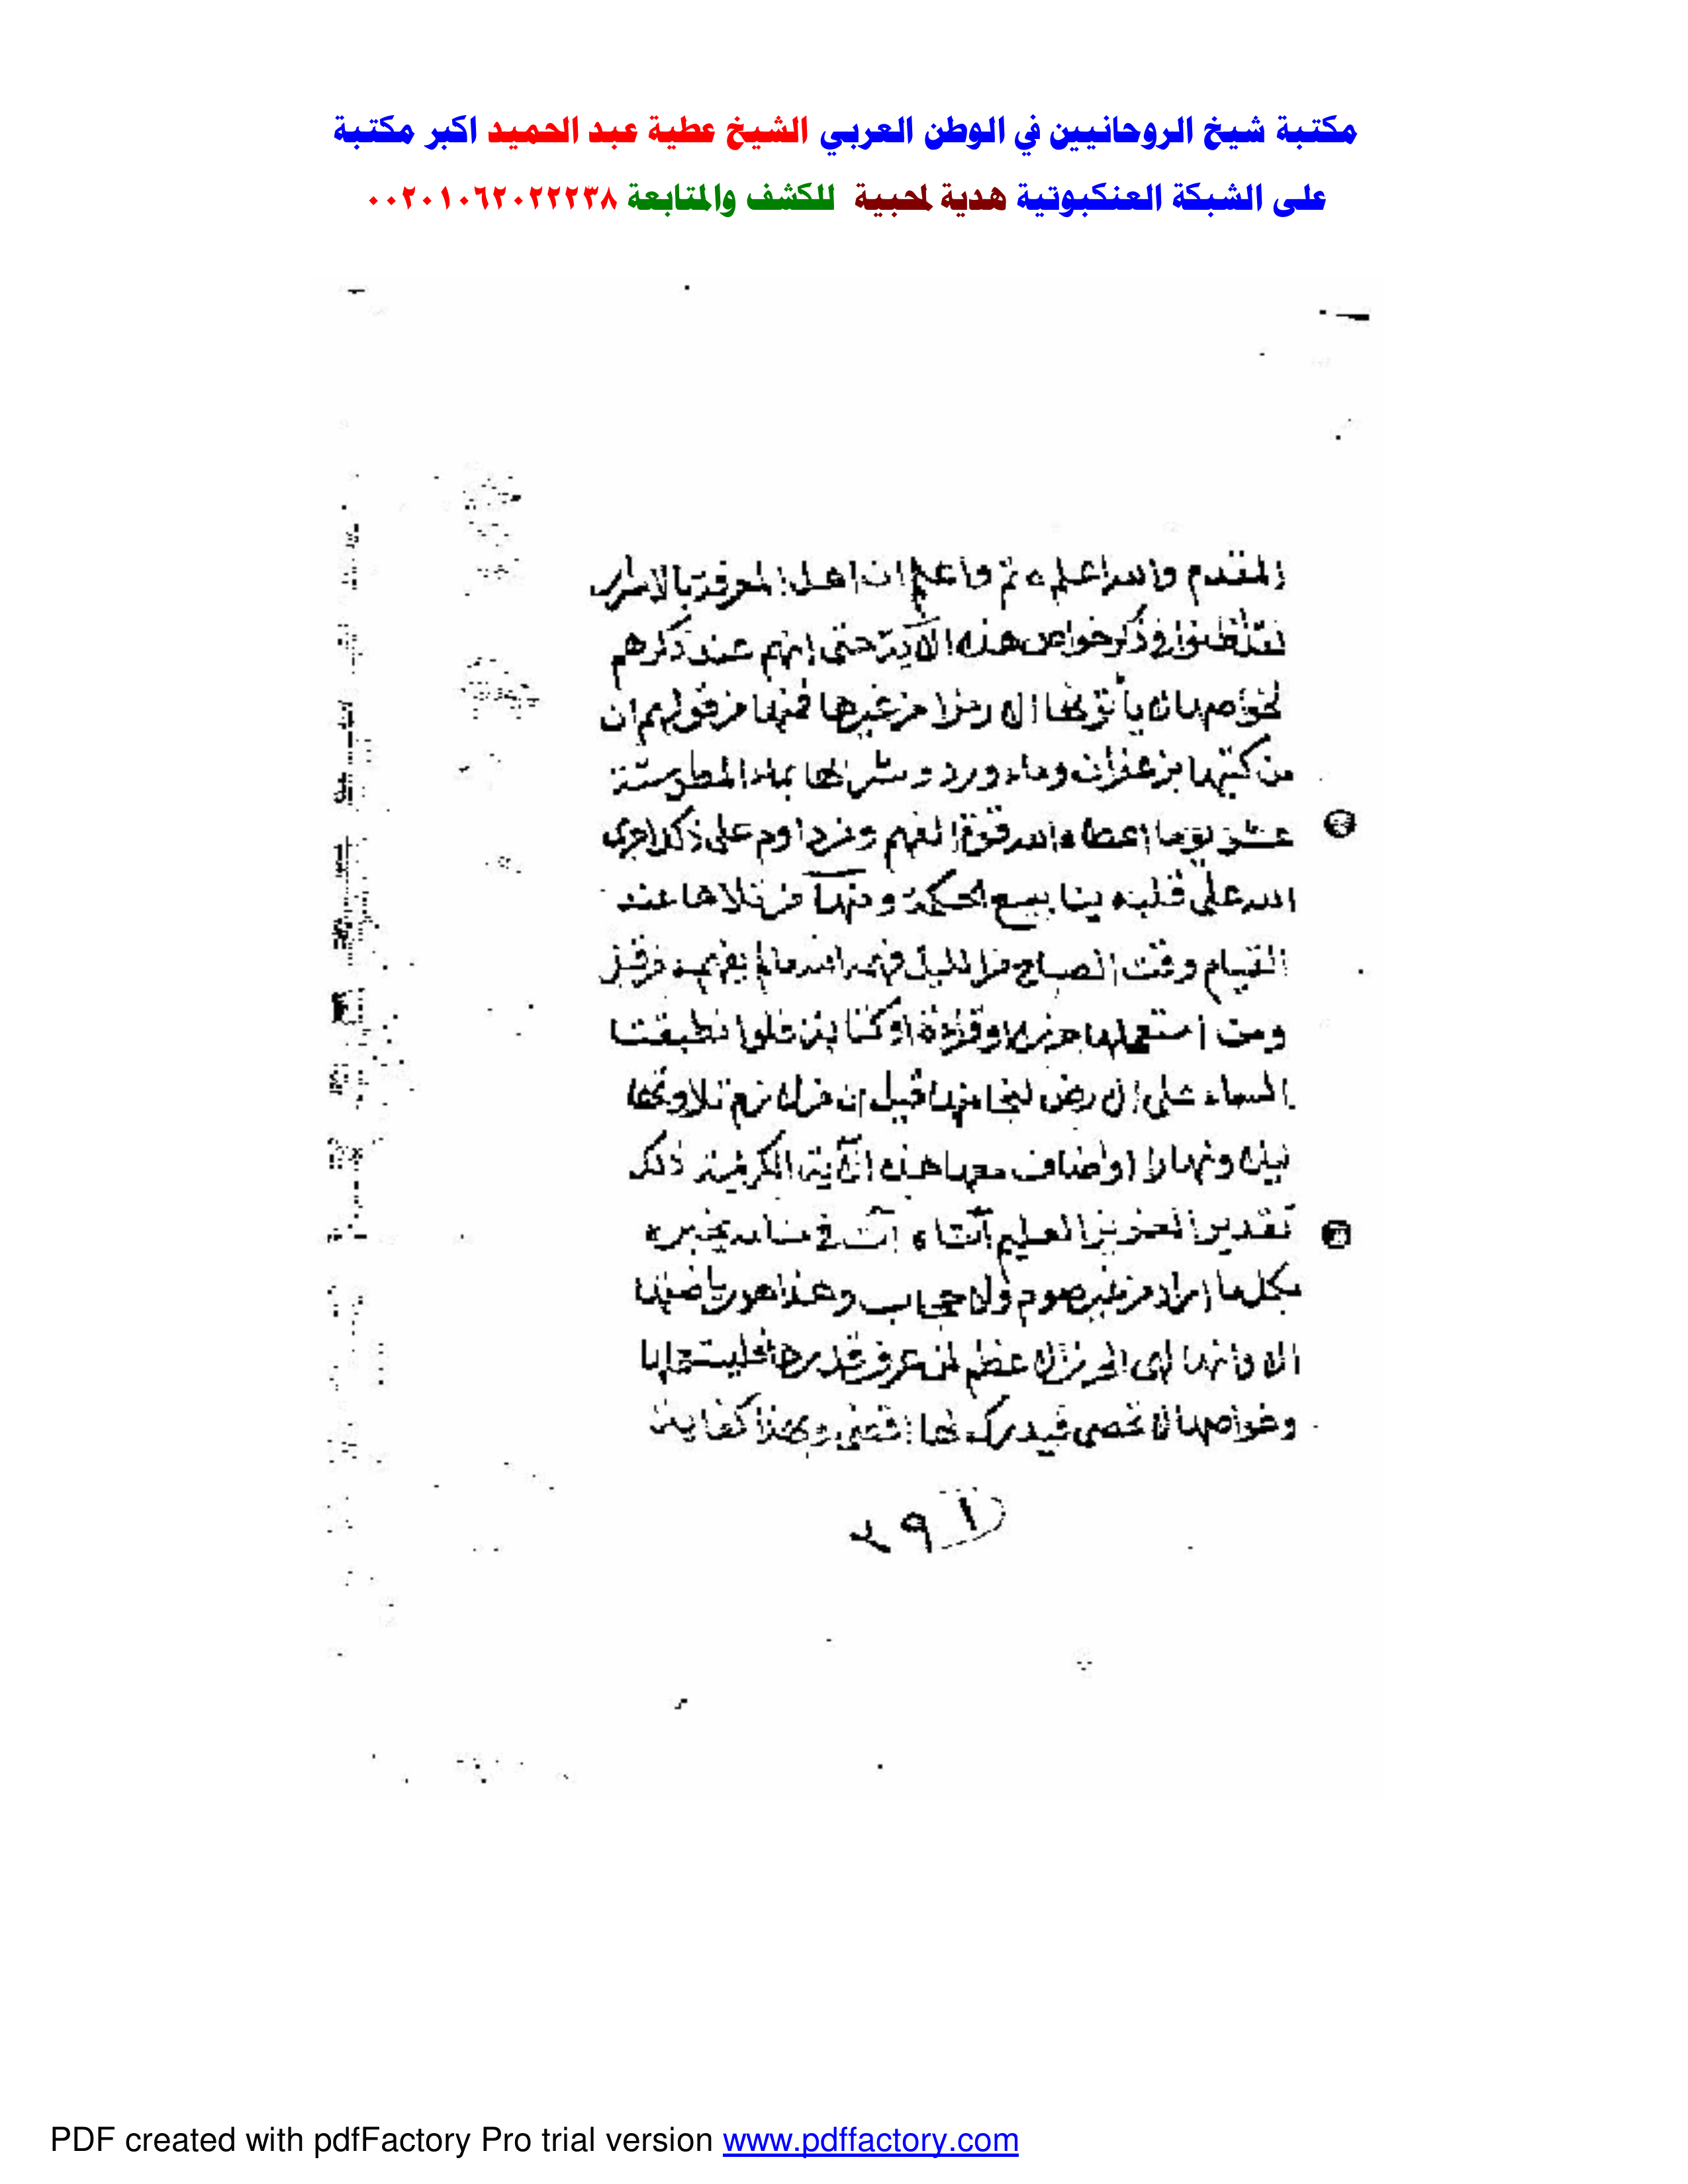 مكتبة شيخ الروحانيين في الوطن العربي الشيخ عطية عبد الحميد اكبر مكتبة
على الشبكة العنكبوتية هدية لمحبية للكشف والمتابعة ٠٠٢٠١٠٦٢٠٢٢٢٣٨
المتقدم والله اعلم ثم واعلم ان اهل المعرفة بالاسرار
خواص هذه الآية حتى انهم عند ذكرهم
لخواصها من غيرها فمنها من قولهم ان
من كتبها بزعفران وماء ورد وشربها بماء المطر ستة
عشر يوما اعطاه الله قوة الفهم ومن داوم على ذلك اجرى
الله على قلبه ينابيع الحكمة ومنها من تلاها عند
القيام وقت الصباح من الليل فهمه الله مالم يفهمه من قبل
ومن استعملها او كتابة فلو انطبقت
السماء على الارض لنجا منها قبل ان تلاوتها
ليلا ونهارا واضاف معها هذه الآية الكريمة ذلك
تقدير العزيز العليم أتاه آت في منامه يخبره
بكل ما اراد من غير صوم ولا حجاب وهذا هو رياضتها
الا وانها لهى الحرز الاعظم لمن عرف قدرها
وخواصها لا تحصى وبهذا كفاية
٢٩١
PDF created with pdfFactory Pro trial version www.pdffactory.com